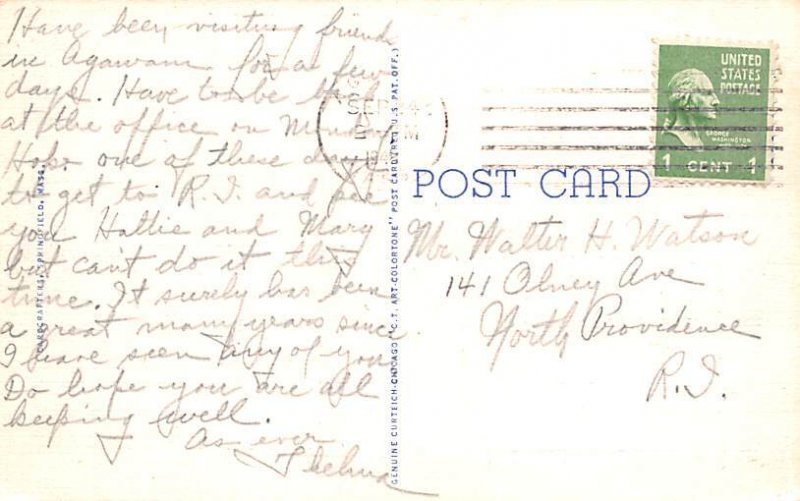 Have been visiting friends
in Agawam for a few
days. Have to be back
at the office on Monday
Hope one of these days
to get to R.I. and see
you Hallie and Mary
but can't do it this
time. It surely has been
a great many years since
I have seen any of you.
Do hope you are all
keeping well.
As ever
Thelma
CARDCRAFTERS, SPRINGFIELD, MASS.
GENUINE CURTEICH-CHICAGO "C.T. ART-COLORTONE" POST CARD (REG. U.S. PAT. OFF.)
SEP 4
M
UNITED
STATES
POSTAGE
GEORGE
WASHINGTON
1 CENT 1
POST CARD
Mr. Walter H. Watson
141 Olney Ave
North Providence
R.I.